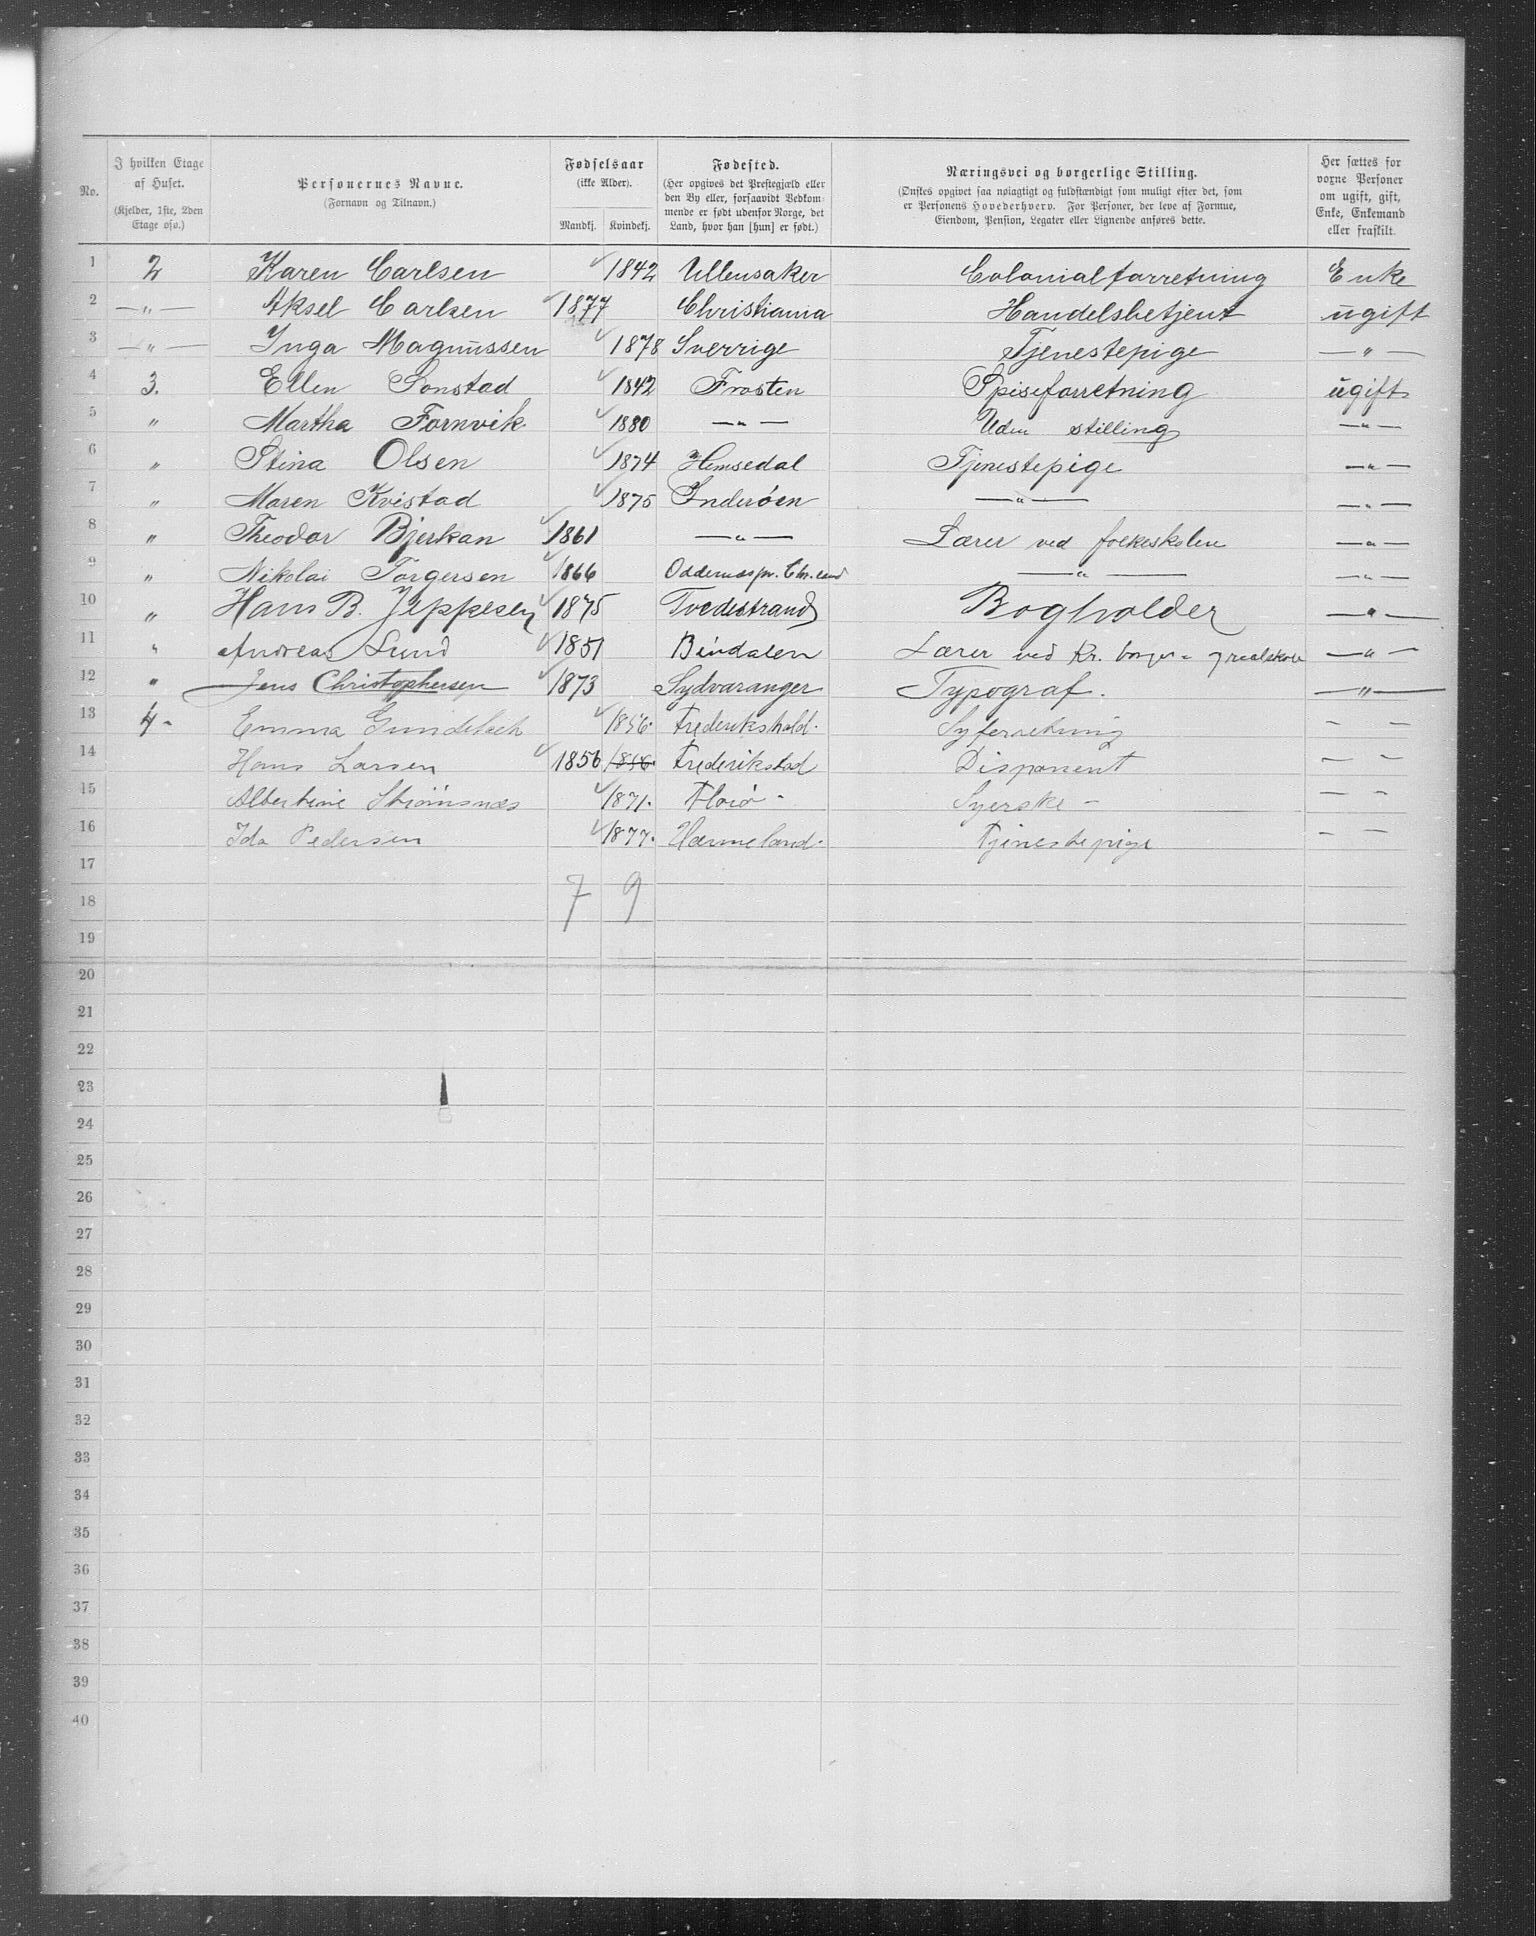 No. I hvilken Etage af Huset. (Kjelder, 1ste, 2den Etage osv.) Personernes Navne. (Fornavn og Tilnavn.) Fødselsaar (ikke Alder). Mandkj. Kvindekj. Fødested. (Her opgives det Præstegjæld eller den By eller, forsaavidt Vedkommende er født udenfor Norge, det Land, hvor han [hun] er født.) Næringsvei og borgerlige Stilling. (Ønskes opgivet saa nøiagtigt og fuldstændigt som muligt efter det, som er Personens Hovederhverv. For Personer, der leve af Formue, Eiendom, Pension, Legater eller Lignende anføres dette.) Her sættes for vorne Personer om ugift, gift, Enke, Enkemand eller fraskilt.
1 2 Karen Carlsen 1842 Ullensaker Colonialforretning Enke
2 —„— Aksel Carlsen 1877 Christiania Handelsbetjent ugift
3 —„— Inga Magnussen 1878 Sverrige Tjenestepige —„—
4 3. Ellen Sonstad 1842 Frosten Spiseforretning ugift
5 „ Martha Fornvik 1880 —„— Uden stilling —„—
6 „ Stina Olsen 1874 Hemsedal Tjenestepige —„—
7 „ Maren Kvistad 1875 Inderøen —„— —„—
8 „ Theodor Bjerkan 1861 —„— Lærer ved folkeskolen —„—
9 „ Nikolai Torgersen 1866 Oddernes pr. Chr.sand —„— —„—
10 „ Hans B. Jeppesen 1875 Tvedestrand Bogholder —„—
11 „ Andreas Lund 1851 Bindalen Lærer ved Kr. borger- & realskole —„—
12 „ Jens Christophersen 1873 Sydvaranger Typograf. —„—
13 4- Emma Gundelach 1856. Frederikshald. Syforretning — —
14 Hans Larsen 1856 1856. Frederikstad Disponent — —
15 Albertine Strømsnæs 1871. Florø - Syerske - — —
16 Ida Pedersen 1877. Værmeland. Tjenestepige — —
17
18 7 9
19
20
21
22
23
24
25
26
27
28
29
30
31
32
33
34
35
36
37
38
39
40